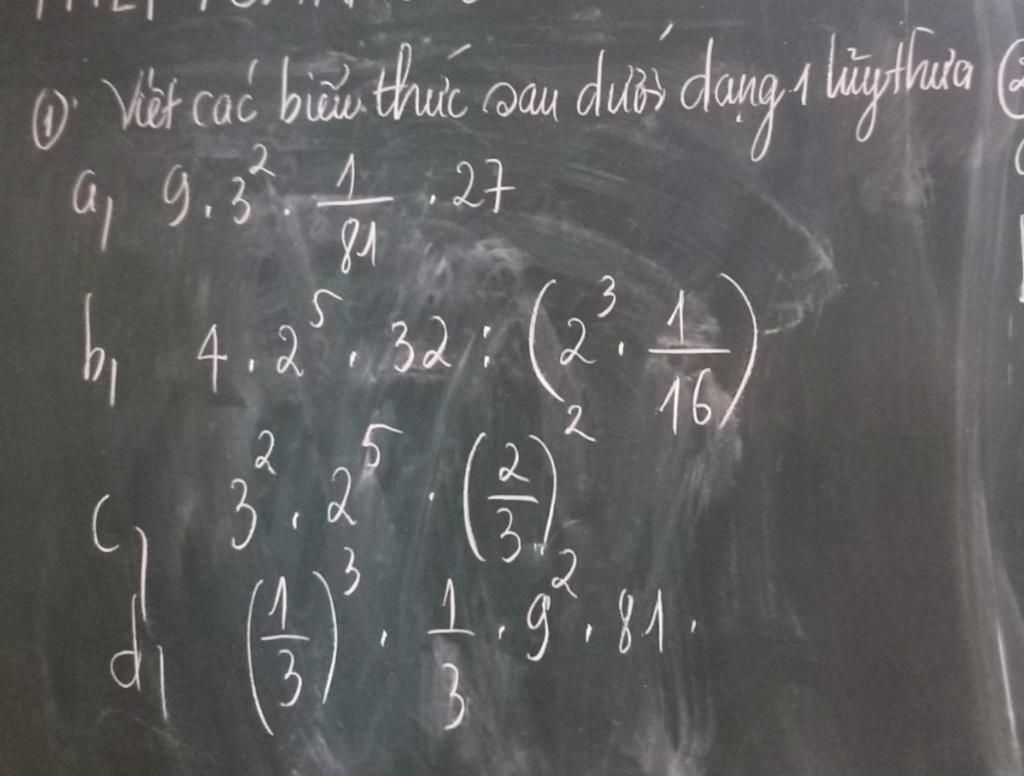 ① Viết các biểu thức sau dưới dạng 1 lũy thừa
a, 9 . 3² . 1/81 . 27
b, 4 . 2⁵ . 32 : (2³ . 1/16)
c, 3² . 2⁵ . (2/3)²
d, (1/3)³ . 1/3 . 9² . 81 .